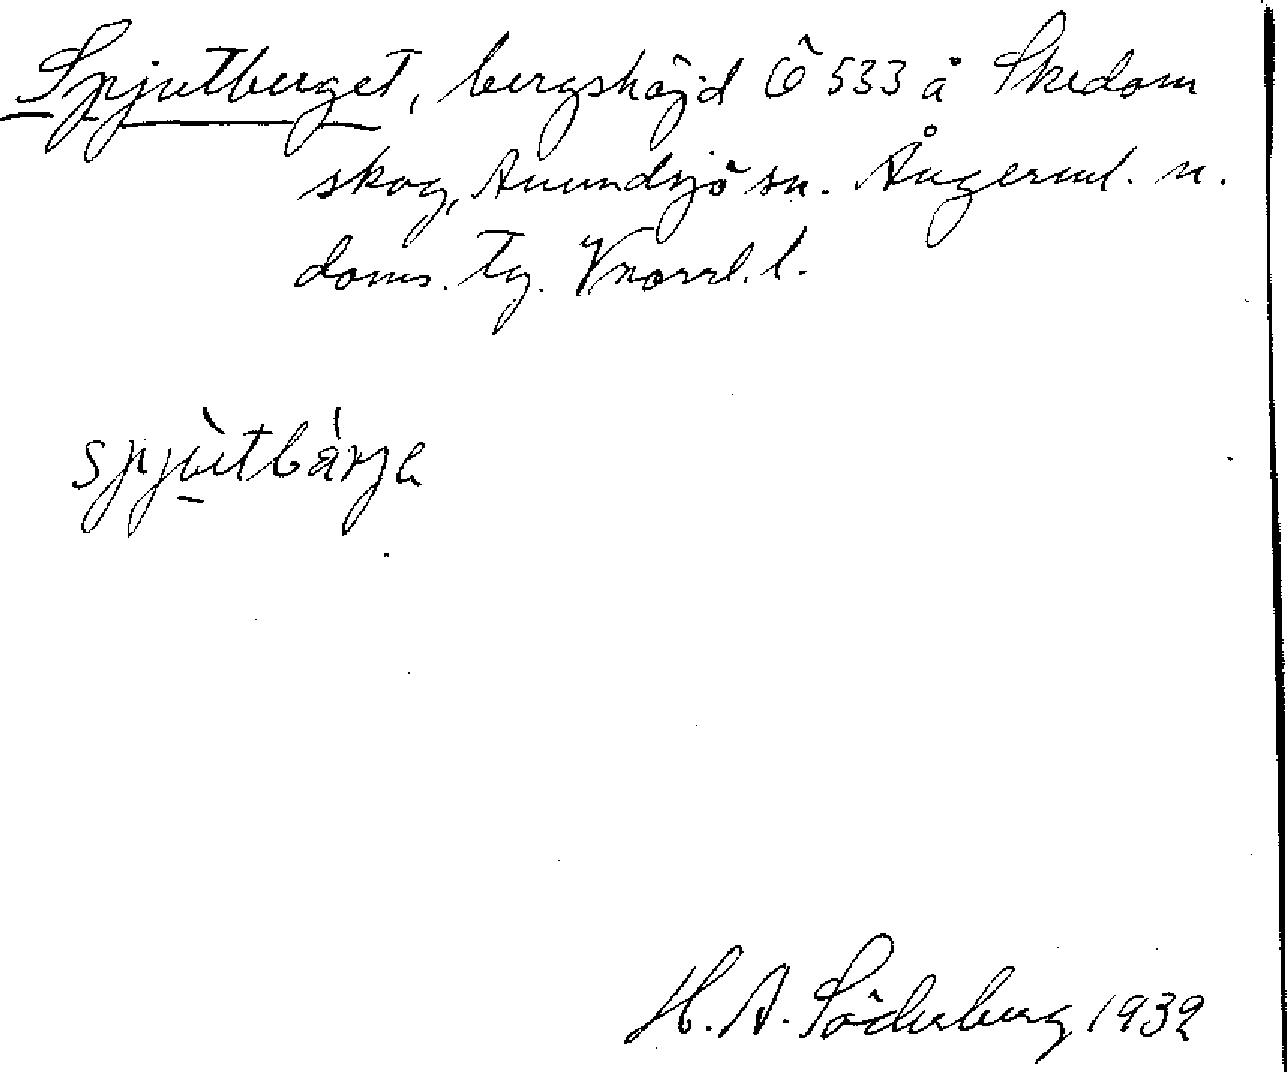 Spjutberget, bergshöjd Ö 533 å Skedom
skog, Anundsjö sn. Ångerml. n.
doms. tg. Vnorrl. l.
spjùtbárja
H. A. Söderberg 1932